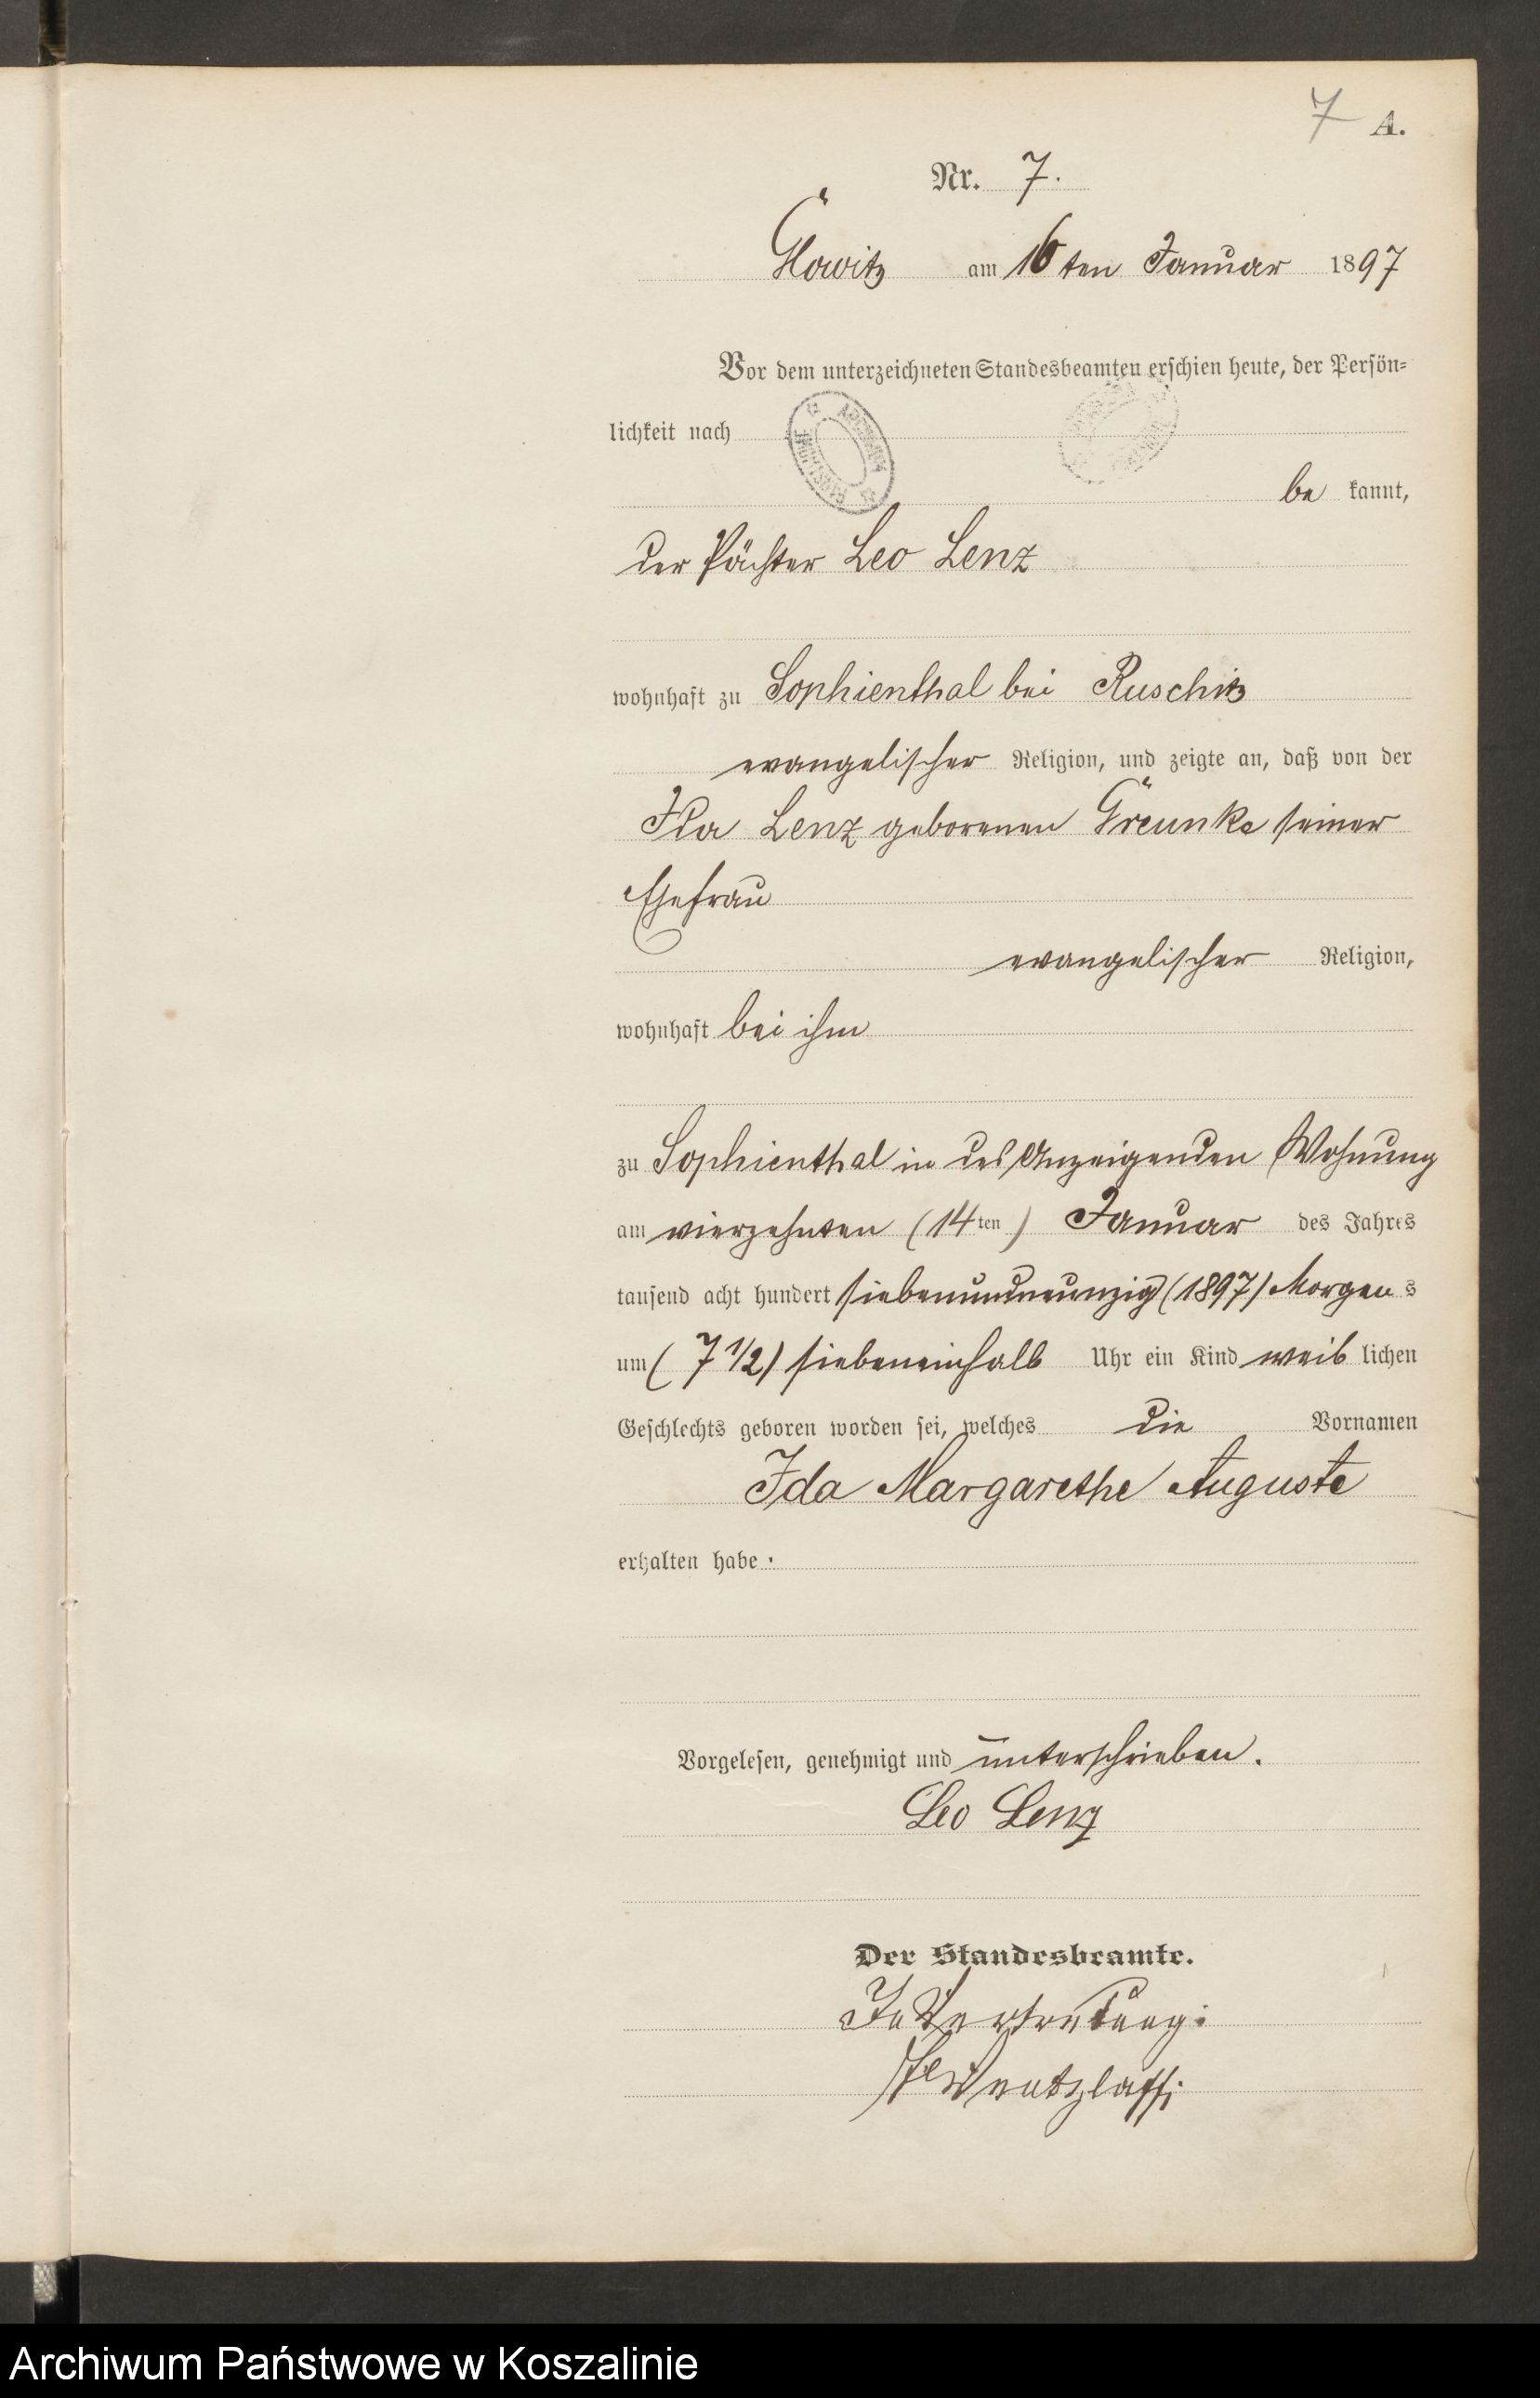 7 A.
Nr. 7.
Glowitz am 16ten Januar 1897
Vor dem unterzeichneten Standesbeamten erschien heute, der Persön-
lichkeit nach
be kannt,
der Pächter Leo Lenz
wohnhaft zu Sophienthal bei Ruschitz
evangelischer Religion, und zeigte an, daß von der
Ida Lenz geborenen Greunke seiner
Ehefrau
evangelischer Religion,
wohnhaft bei ihm
zu Sophienthal in des Anzeigenden Wohnung
am vierzehnten (14ten) Januar des Jahres
tausend acht hundert siebenundneunzig (1897) Morgens
um (7 1/2) siebeneinhalb Uhr ein Kind weiblichen
Geschlechts geboren worden sei, welches die Vornamen
Ida Margarethe Auguste
erhalten habe.
Vorgelesen, genehmigt und unterschrieben.
Leo Lenz
Der Standesbeamte.
In Vertretung:
Wentzlaff
Archiwum Państwowe w Koszalinie